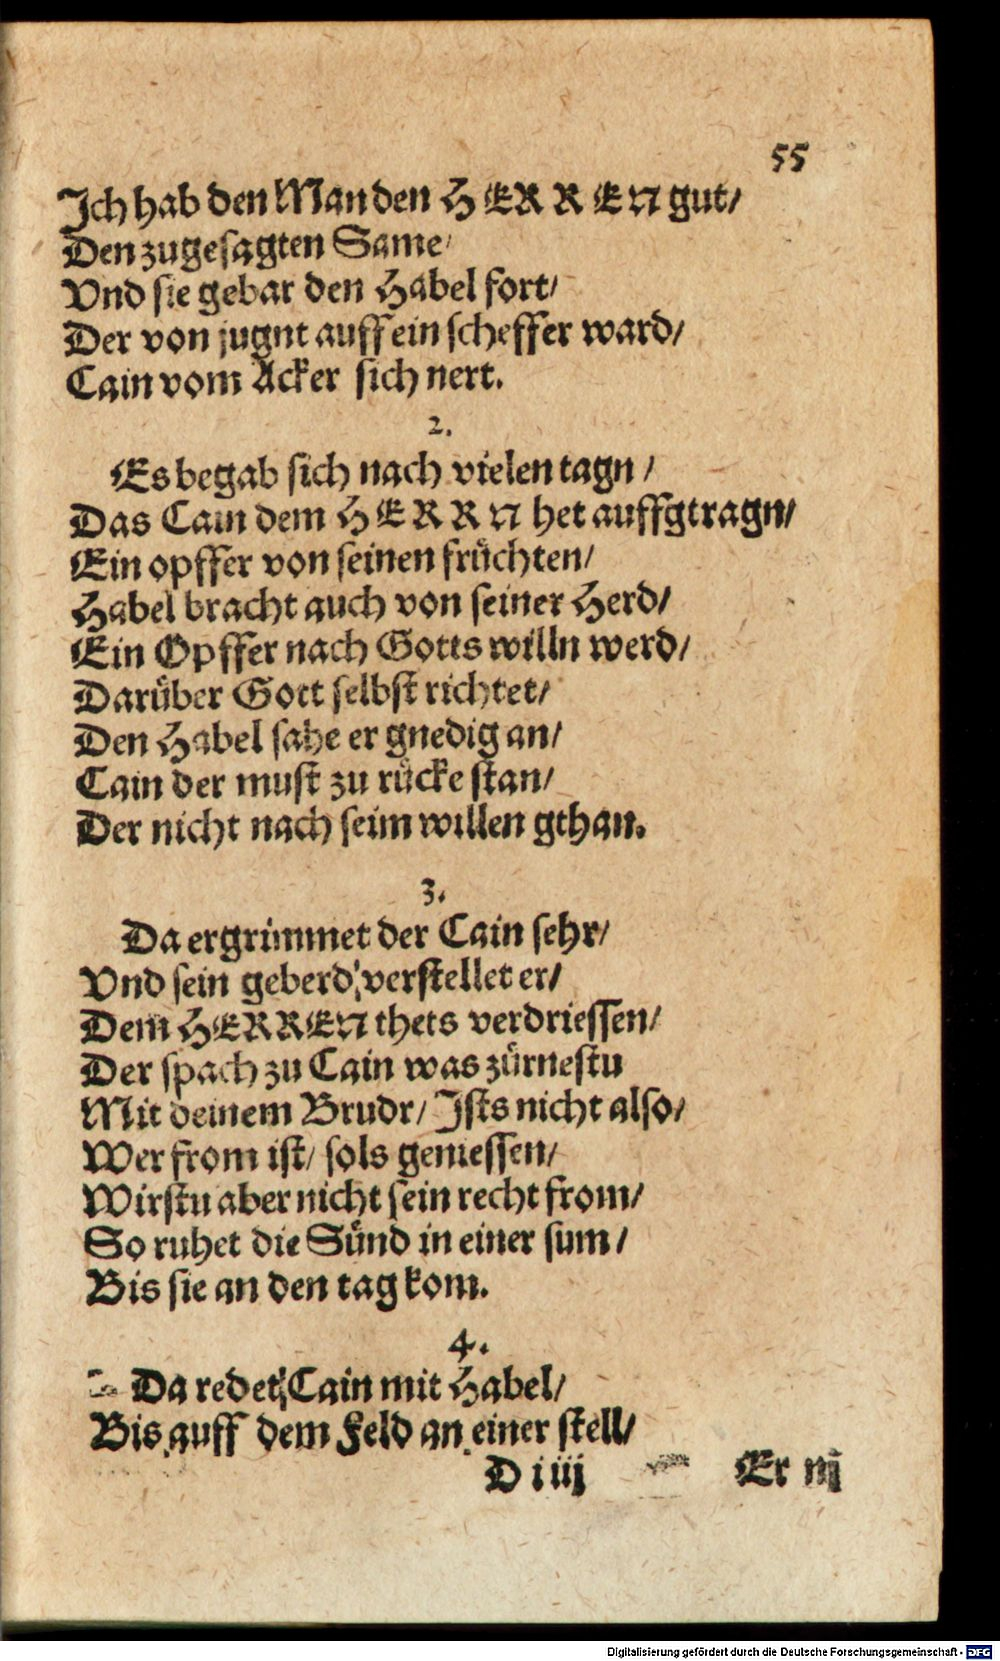 55
Ich hab den Man den HERREN gut/
Den zugesagten Same/
Vnd sie gebar den Habel fort/
Der von jugnt auff ein scheffer ward/
Cain vom Acker sich nert.
2.
Es begab sich nach vielen tagn /
Das Cain dem HERRN het auffgtragn/
Ein opffer von seinen früchten/
Habel bracht auch von seiner Herd/
Ein Opffer nach Gotts willn werd/
Darüber Gott selbst richtet/
Den Habel sahe er gnedig an/
Cain der must zu rücke stan/
Der nicht nach seim willen gthan.
3.
Da ergrimmet der Cain sehr/
Vnd sein geberd verstellet er/
Dem HERREN thets verdriessen/
Der spach zu Cain was zürnestu
Mit deinem Brudr/ Ists nicht also/
Wer from ist/ sols geniessen/
Wirstu aber nicht sein recht from/
So ruhet die Sünd in einer sum /
Bis sie an den tag kom.
4.
Da redet Cain mit Habel/
Bis auff dem Feld an einer stell/
D iiij Er
Digitalisierung gefördert durch die Deutsche Forschungsgemeinschaft - DFG